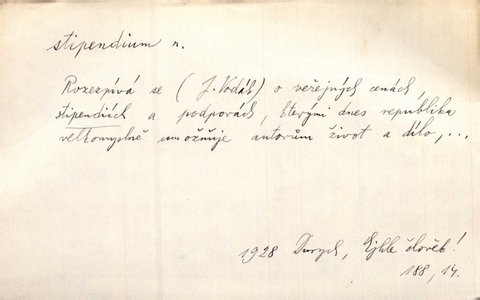 stipendium n.
Rozezpívá se (J. Vodák) o veřejných cenách,
stipendiích a podporách, kterými dnes republika
velkomyslně umožňuje autorům život a dílo,...
1928 Durych, Ejhle člověk!
188, 14.